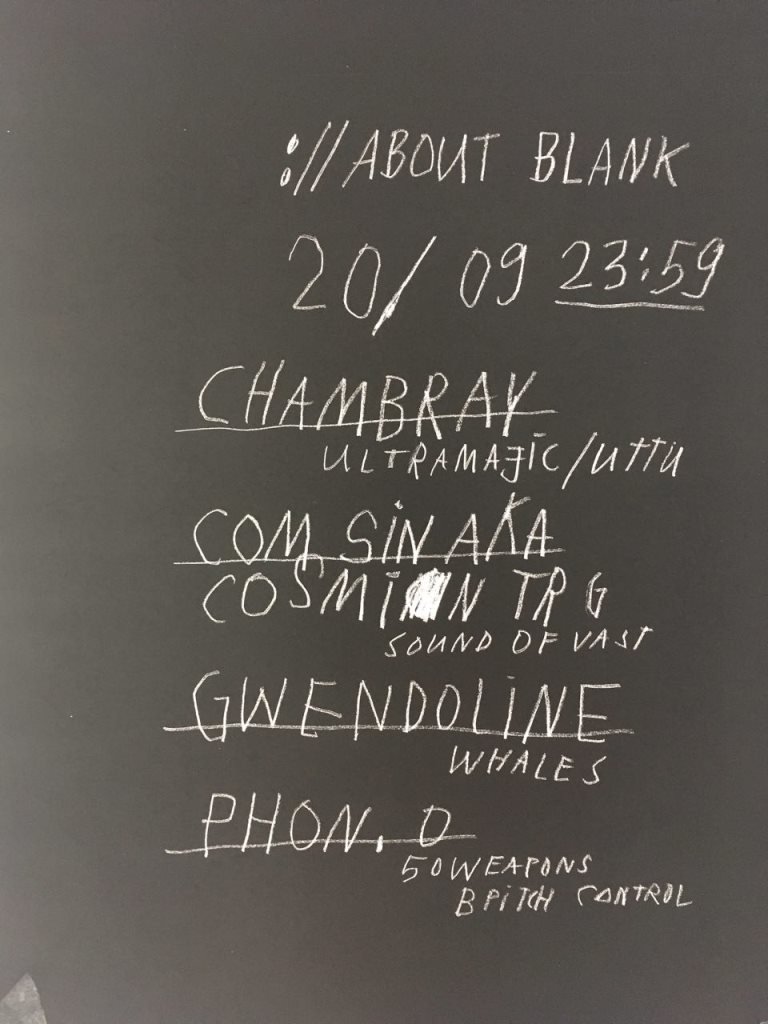 ://ABOUT BLANK
20/09 23:59
CHAMBRAY
ULTRAMAJIC/UTTU
COM.SIN AKA
COSMIN TRG
SOUND OF VAST
GWENDOLINE
WHALES
PHON.O
50WEAPONS
BPITCH CONTROL